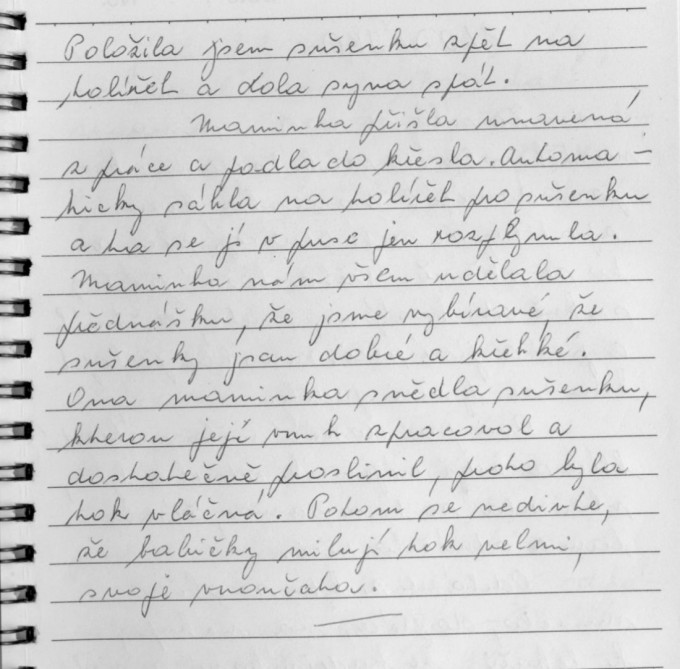 Položila jsem sušenku zpět na
talířek a dala syna spát.
Maminka přišla unavená
z práce a padla do křesla. Automa-
ticky sáhla na talířek po sušenku
a ta se jí v puse jen rozplynula.
Maminka nám všem udělala
přednášku, že jsme vybíravé, že
sušenky jsou dobré a křehké.
Ona maminka snědla sušenku,
kterou její vnuk zpracoval a
dostatečně proslinil, proto byla
tak vláčná. Potom se nedivte,
že babičky milují tak velmi,
svoje vnoučata.